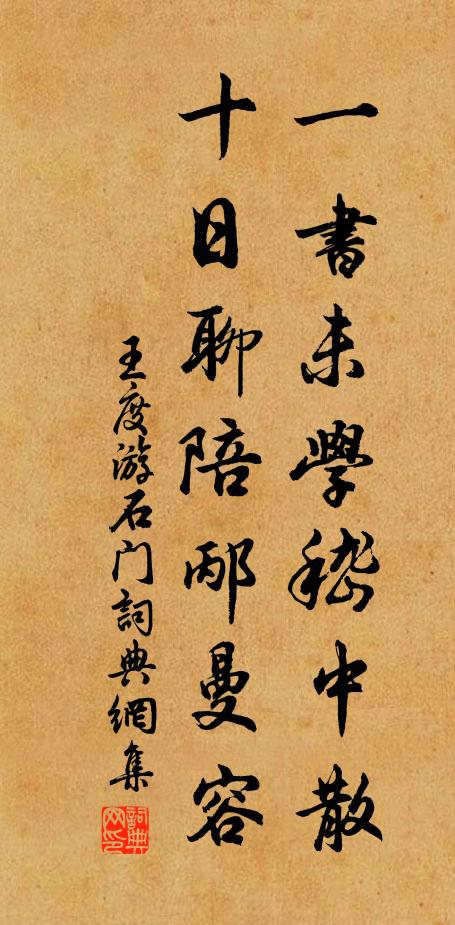 一書未學嵇中散
十日聊陪邴曼容
王度游石门詞典網集
詞典网印